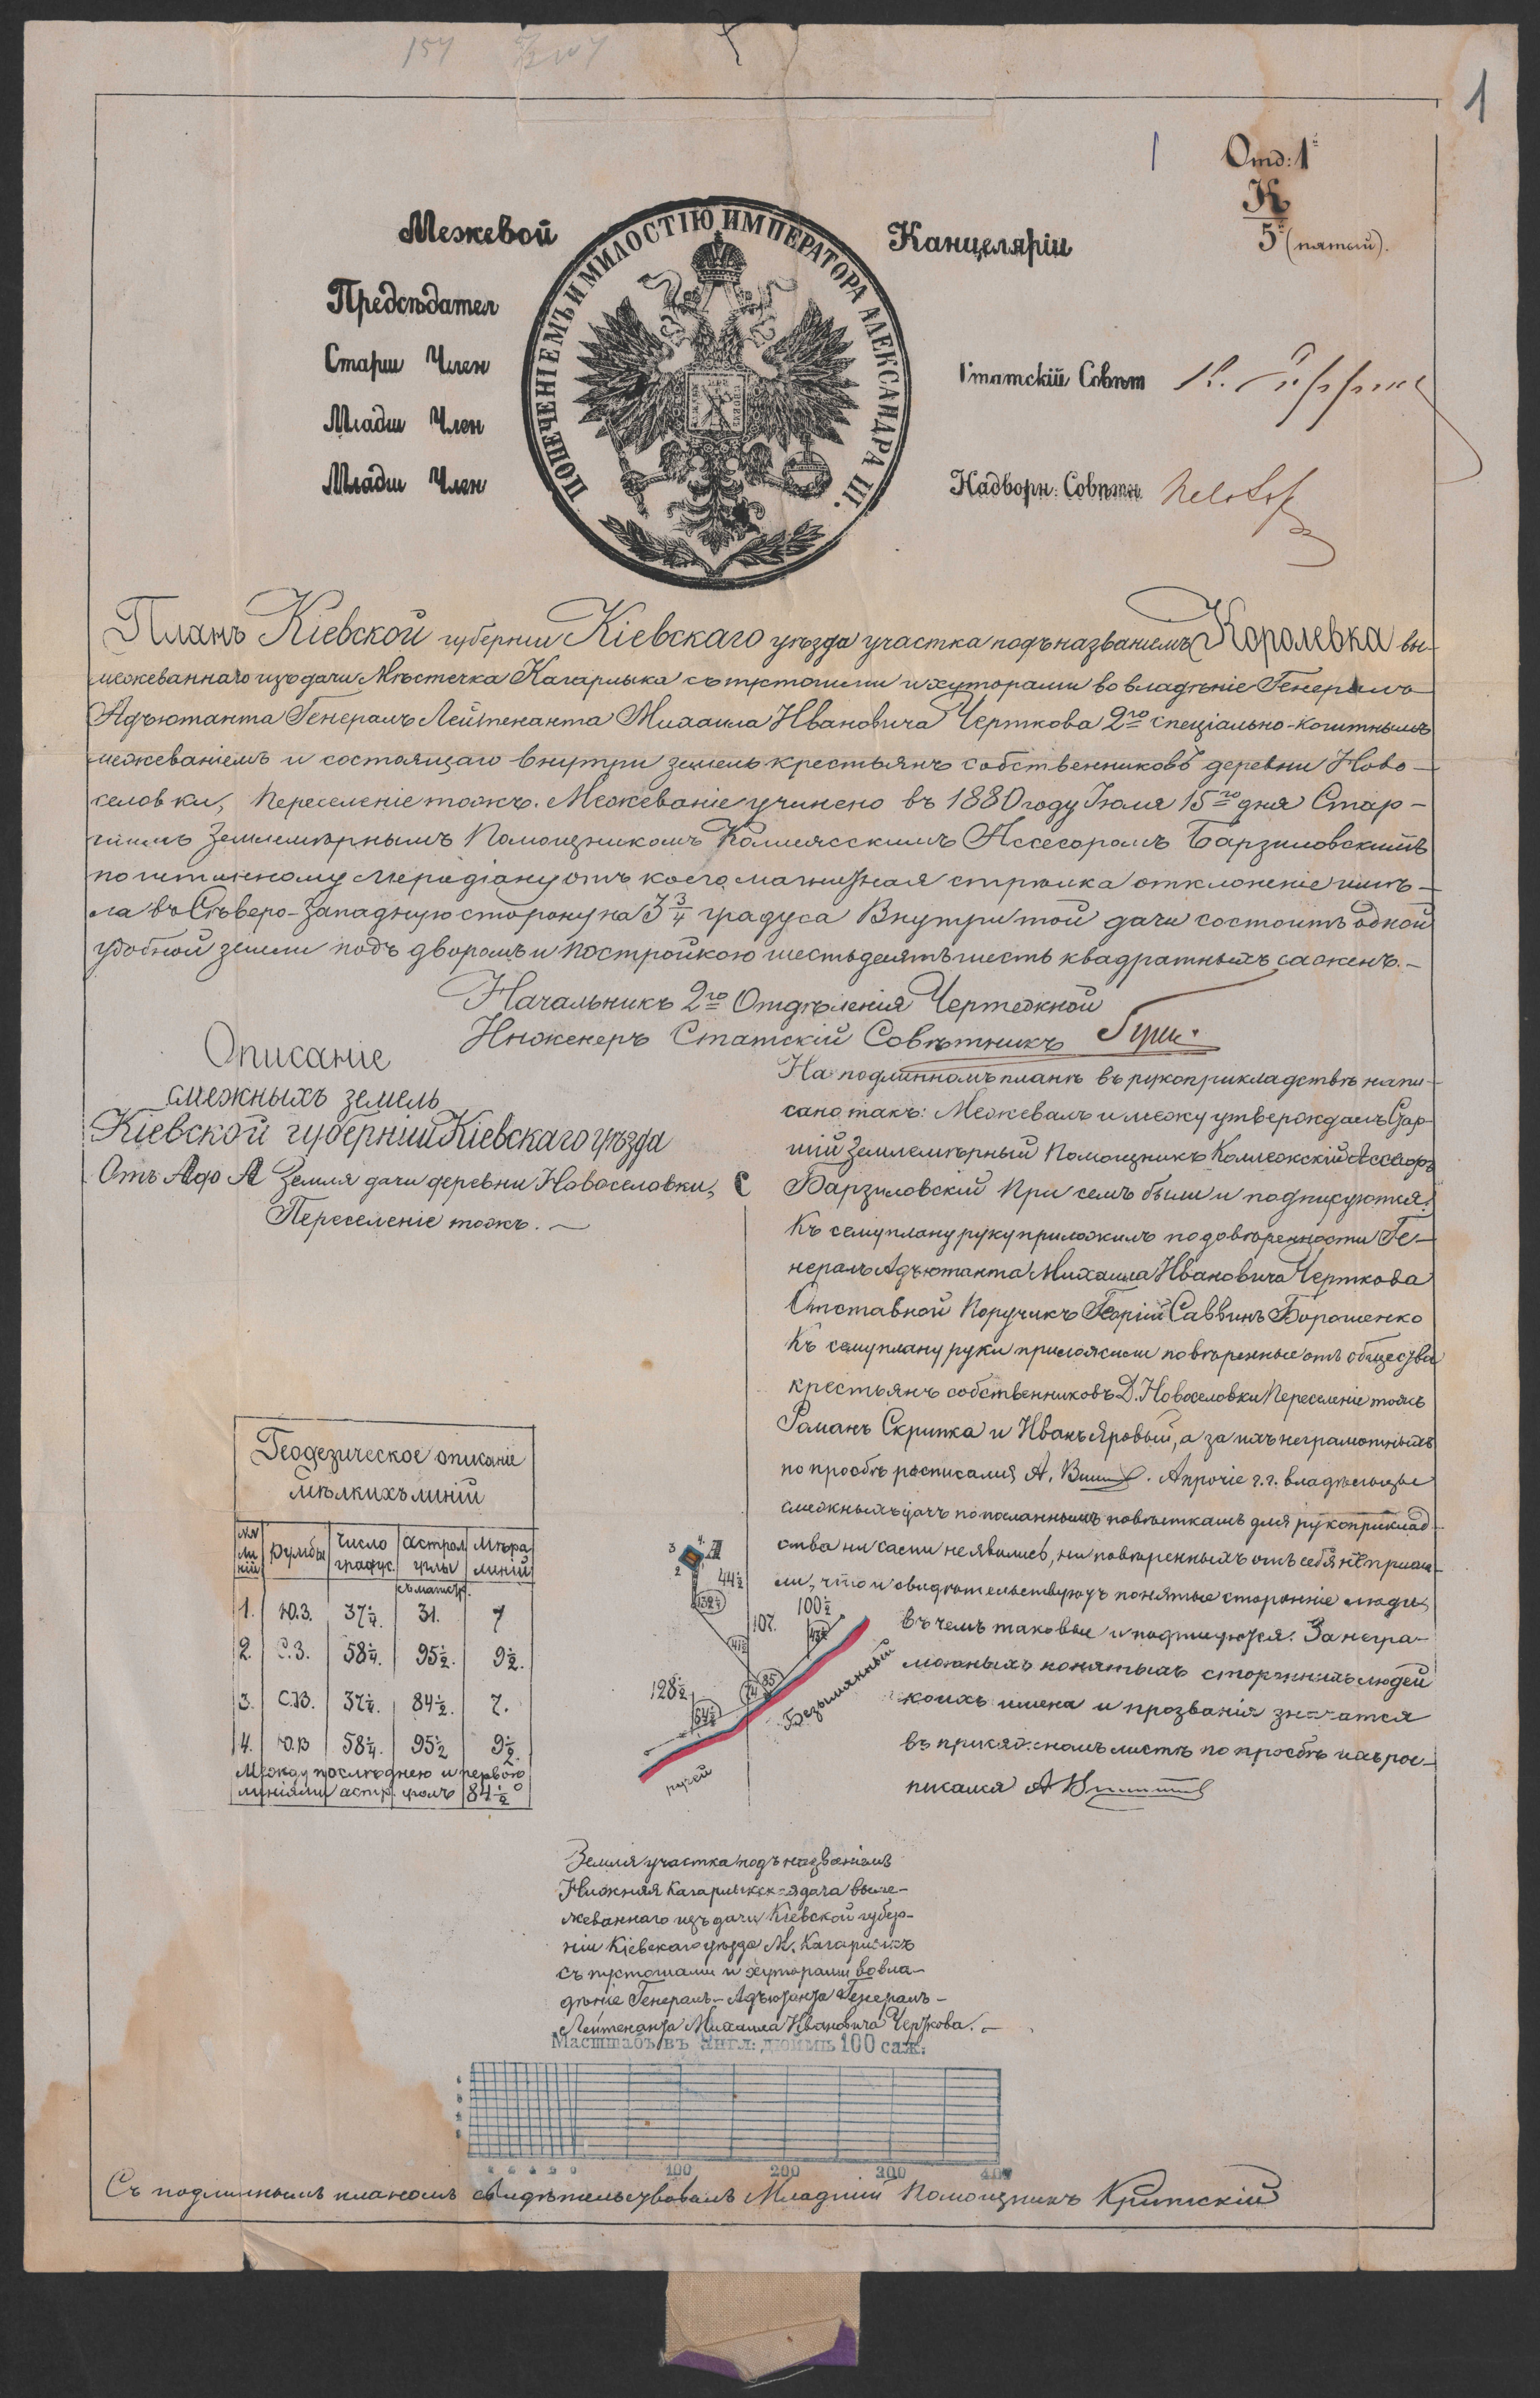 154
1
Отд: 1е
К
5й (пятый).
Межевой Канцеляріи
ПОПЕЧЕНІЕМЪ И МИЛОСТІЮ ИМПЕРАТОРА АЛЕКСАНДРА III.
Предсѣдател
Старш Член
Младш Член
Младш Член
Статскій Совѣт
Надворн: Совѣтн
Планъ Кіевской губерніи Кіевскаго уѣзда участка подъ названіемъ Королевка вы-
межеваннаго изъ дачи Мѣстечка Кагарлыка съ пустошми и хуторами во владѣніе Генералъ
Адъютанта Генералъ Лейтенанта Михаила Ивановича Черткова 2го спеціально-коштнымъ
межеваніемъ и состоящаго внутри земель крестьянъ собственниковъ деревни Ново-
селовки, Переселеніе тожъ. Межеваніе учинено въ 1880 году Іюля 15го дня Стар-
шимъ Землемѣрнымъ Помощникомъ Коллежскимъ Ассесоромъ Барзиловскимъ
по истинному меридіану отъ коего магнитная стрѣлка отклоненіе имѣ-
ла въ Сѣверо-Западную сторону на 3 3/4 градуса Внутри той дачи состоитъ одной
удобной земли подъ дворомъ и постройкою шестьдесятъ шесть квадратныхъ сажень.-
Начальникъ 2го Отдѣленія Чертежной
Инженеръ Статскій Совѣтникъ
Описаніе
смежныхъ земель
Кіевской губерніи Кіевскаго уѣзда
Отъ А до А Земля дачи деревни Новоселовки,
Переселеніе тожъ.
С
На подлинномъ планѣ въ рукоприкладствѣ напи-
сано такъ: Межевалъ и межу утверждалъ Стар-
шій Землемѣрный Помощникъ Коллежскій Ассесоръ
Барзиловскій При семъ были и подписуются:
Къ сему плану руку приложилъ по довѣренности Ге-
нералъ Адъютанта Михаила Ивановича Черткова
Отставной Поручикъ Георгій Саввинъ Борошенко
Къ сему плану руки приложили повѣренные отъ общества
крестьянъ собственниковъ Д. Новоселовки Переселеніе тожъ
Романъ Скрипка и Иванъ Яровый, а за ихъ неграмотныхъ
по просьбѣ росписался А. Прочіе г.г. владѣльцы
смежныхъ дачъ по посланнымъ повѣсткамъ для рукоприклад-
ства ни сами не явились, ни повѣренныхъ отъ себя не присла-
ли, что и свидѣтельствуютъ понятые сторонніе люди,
въ чемъ таковые и подпишутся. За негра-
мотныхъ понятыхъ стороннихъ людей
коихъ имена и прозванія значатся
въ прикладномъ листѣ по просьбѣ ихъ рос-
писался А
Геодезическое описаніе
мѣлкихъ линій
№№ линій Румбы Число градус. Астрол углы Мѣра линій
съ магистр.
1. Ю.З. 37 1/4. 31. 7
2. С.З. 58 1/4. 95 1/2. 9 1/2.
3. С.В. 37 1/4. 84 1/2. 7.
4. Ю.В 58 1/4. 95 1/2 9 1/2.
Между послѣднею и первою
линіями астр. уголъ 84 1/2°
3 4. А
2 1
44 1/2
132 1/4
107.
100 1/2
41 1/2
43 1/2
74 35
128 1/2
64 1/2
Безымянный
ручей
Земля участка подъ названіемъ
Нижняя Кагарлыкская дача выме-
жеваннаго изъ дачи Кіевской губер-
ніи Кіевскаго уѣзда М. Кагарлыкъ
съ пустошами и хуторами во вла-
дѣніе Генералъ-Адъютанта Генералъ-
Лейтенанта Михаила Ивановича Черткова.
Масштабъ въ Англ: дюймѣ 100 саж:
100 200 300 400
Съ подлиннымъ планомъ свидѣтельствовалъ Младшій Помощникъ Критскій